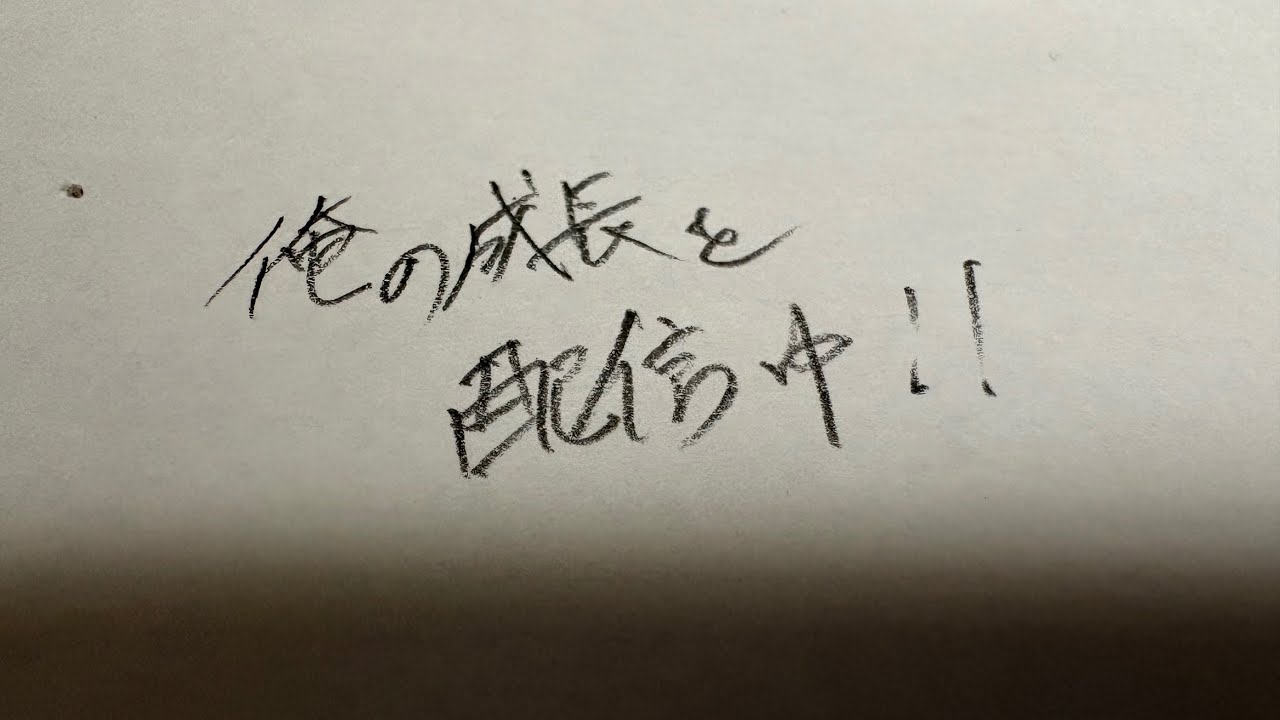 俺の成長を
配信中!!